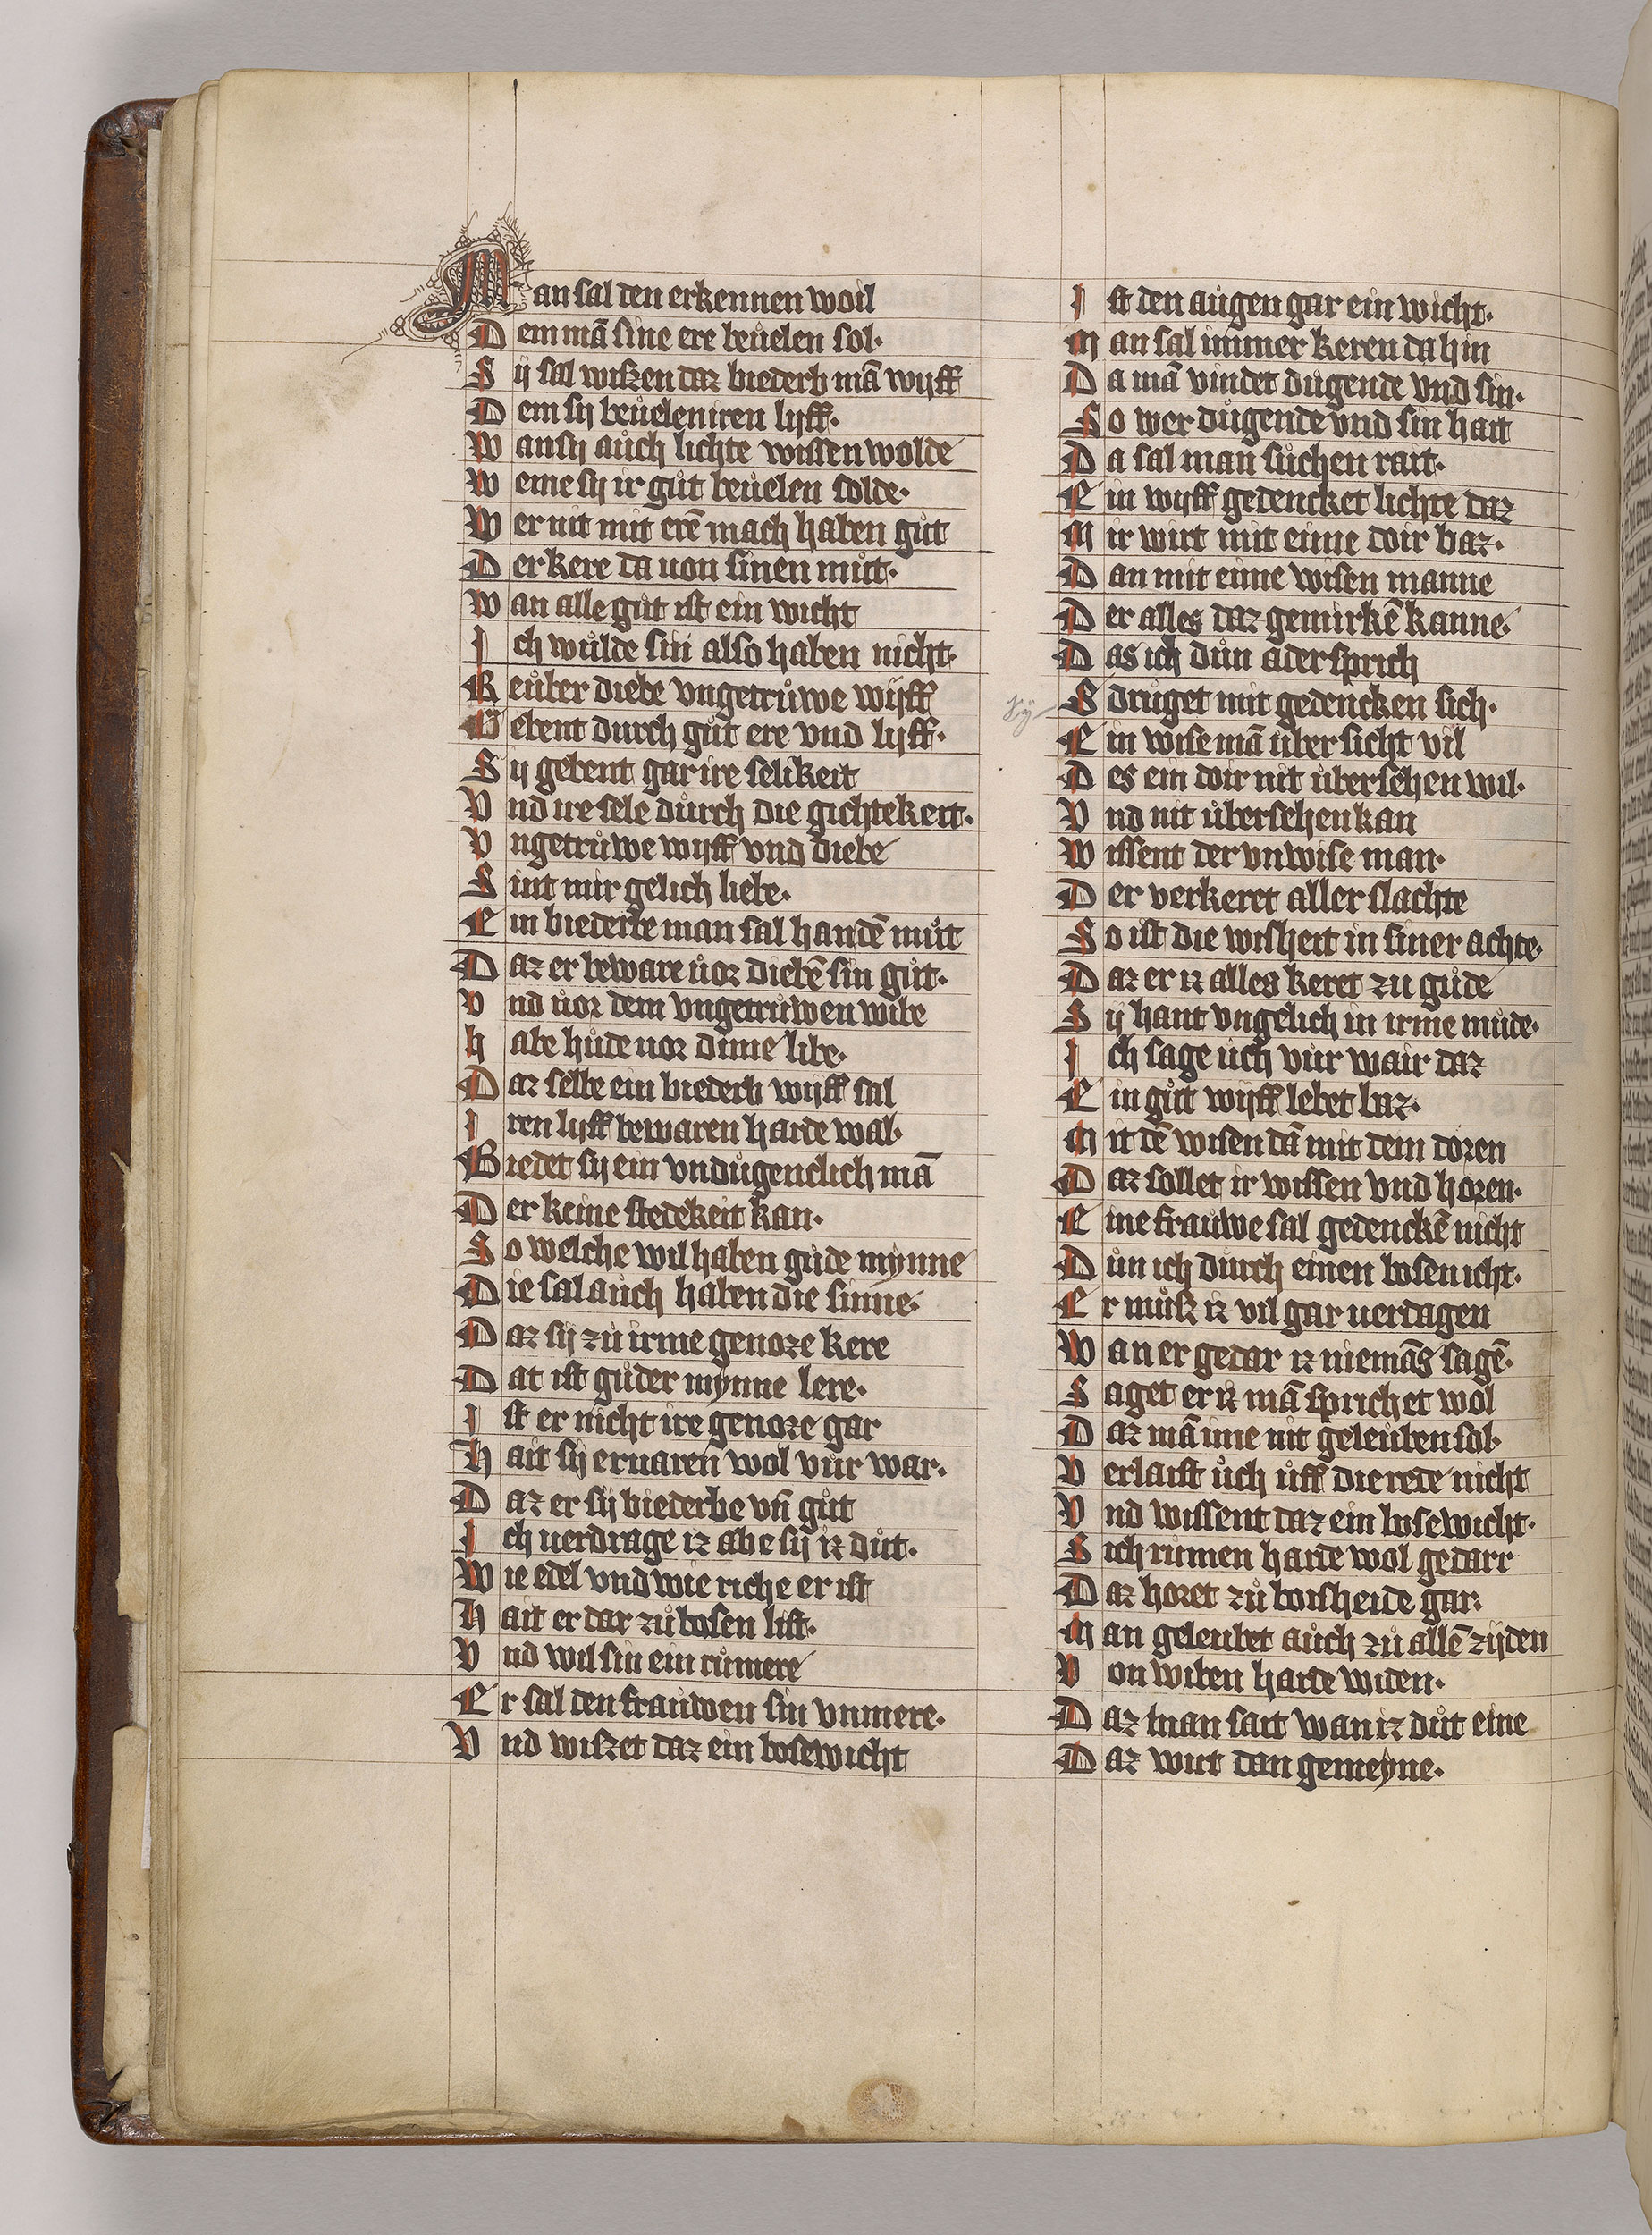 Man sal den erkennen woil
Dem mā sine ere beuͦelen sol·
Sÿ sal wiſzen daz biederb mā wijff
Dem sij beuͦelen iren lijff·
Wan sij auͦch lichte wissen wolde
Weme sij ir guͦt beuͦelen solde·
Wer nit mit erē mach haben guͦt
Der kere da uon sinen muͦt·
Wan alle guͦt ist ein wicht
Ich wuͦlde sin also haben nicht·
Reuͦber diebe vngetruͦwe wijff
Gebent durch guͦt ere vnd lijff·
Sij gebent gar ire selikeit
Vnd ire sele duͦrch die gichtekeit·
Vngetruͦwe wijff vnd diebe
Sint mir gelich liebe·
Ein biederbe man sal han dē muͦt
Daz er beware uͦor diebē sin guͦt·
Vnd uͦor dem vngetruͦwen wibe
Habe huͦde uor dime libe·
Daz selbe ein biederb wijff sal
Iren lijff bewaren harde wal·
Biedet sij ein vnduͦgenclich mā
Der keine stedekeit kan·
So welche wil haben guͦde mynne
Die sal auͦch haben die sinne·
Daz sij zuͦ irme genoze kere
Dat ist guͦder mynne lere·
Ist er nicht ire genoze gar
Hait sij eruaren wol vuͦr war·
Daz er sij biederbe vn̄ guͦt
Ich uerdrage iz abe sij iz duͦt·
Wie edel vnd wie riche er ist
Hait er dar zuͦ bosen list·
Vnd wil sin ein ruͦmere
Er sal den frauͦwen sin vnmere·
Vnd wiſzet daz ein bosewicht
Ist den auͦgen gar ein wicht·
Man sal immer keren da hin
Da mā vindet duͦgende vnd sin·
So wer duͦgende vnd sin hait
Da sal man suͦchen rait·
Ein wijff gedencket lichte daz
Mir wirt mit eime doir baz·
Dan mit eime wisen manne
Der alles daz gemirkē kanne·
Das ich duͦn ader sprich
So druͦget mit gedencken sich·
Ein wise mā uͦber sicht vil
Des ein doir nit uͦbersehen wil·
Vnd nit uͦbersehen kan
Wissent der vnwise man·
Der verkeret aller slachte
So ist die wisheit in siner achte·
Daz er iz alles keret zu guͦde
Sij hant vngelich in irme muͦde·
Ich sage uͦch vuͦr wair daz
Ein guͦt wijff lebet baz·
Mit dē wisen dā mit dem doren
Daz sollet ir wissen vnd horen·
Eine frauͦwe sal gedenckē nicht
Duͦn ich duͦrch einen bosen icht·
Er muͦſz iz vil gar uerdagen
Wan er gedar iz niemās sagē·
Saget er iz mā sprichet wol
Daz mā ime nit geleuͦben sol·
Verlaist uͦch uͦff die rede nicht
Vnd wissent daz ein bosewicht·
Sich ruͦmen harde wol gedarr
Daz horet zuͦ boisheide gar·
Man geleubet auͦch zuͦ allē zijden
Von wiben harde widen·
Daz man sait wan iz duͦt eine
Daz wirt dan gemeyne·